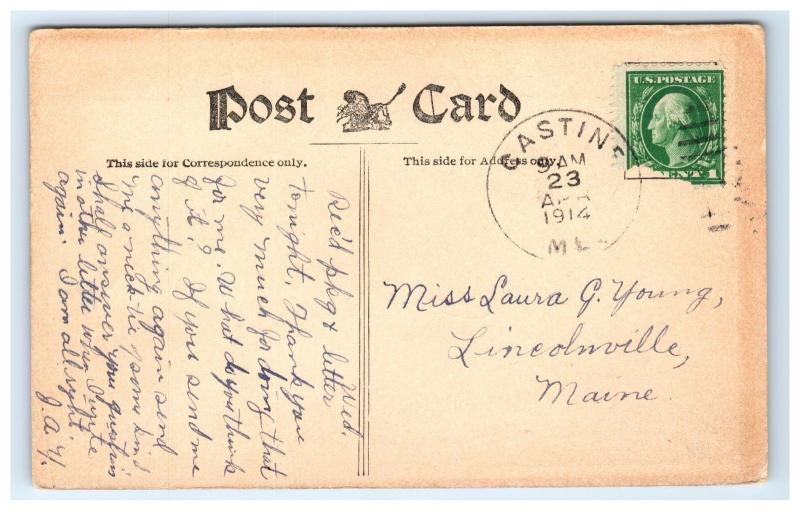 Post Card
This side for Correspondence only.
This side for Address only.
U.S. POSTAGE
CENT 1
CASTINE
9 AM
23
APR
1914
ME
Miss Laura G. Young,
Lincolnville,
Maine.
Wed.
Rec'd pkg & letter
tonight. Thank you
very much for doing that
for me. What do you think
of it? If you send me
anything again send
me a nick-tie of some kind
Shall answer your questions
in other letter when I write
again. I am all right.
J. A. Y.